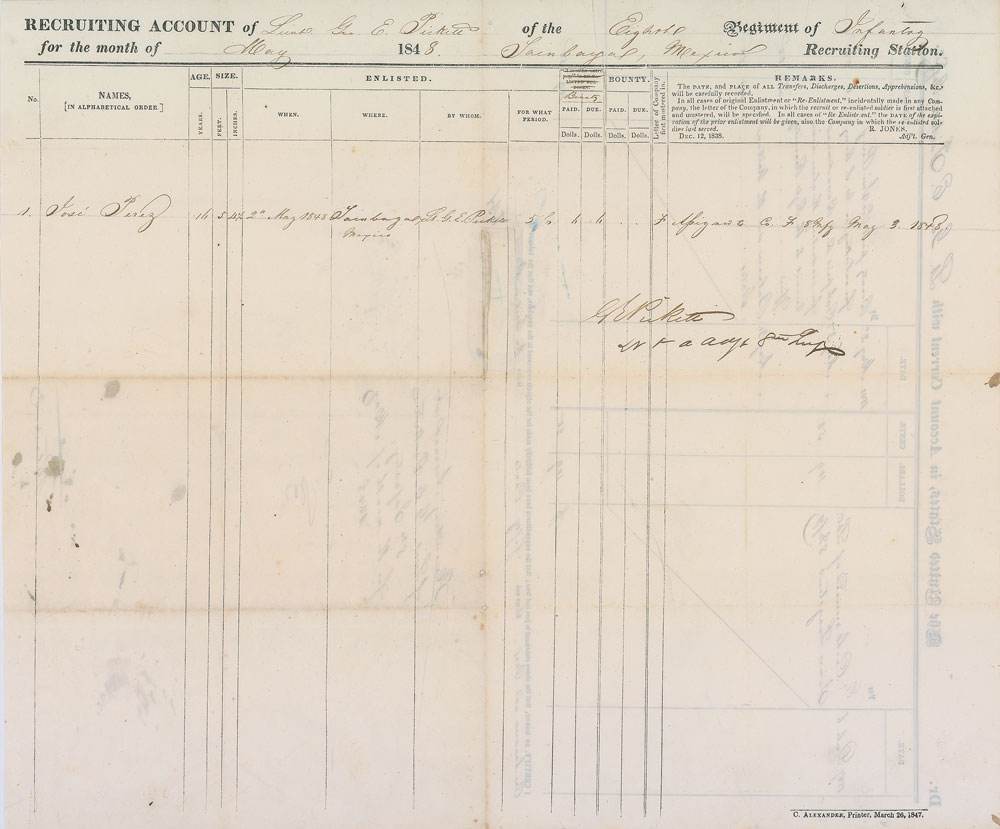 RECRUITING ACCOUNT of Lieut. Geo. E. Pickett of the Eighth Regiment of Infantry
for the month of May 1848 Mexico Recruiting Station.
No.
NAMES,
[IN ALPHABETICAL ORDER.]
AGE.
YEARS.
SIZE.
FEET.
INCHES.
ENLISTED.
WHEN.
WHERE.
BY WHOM.
FOR WHAT
PERIOD.
Bounty
PAID. DUE.
Dolls. Dolls.
BOUNTY.
PAID. DUE.
Dolls. Dolls.
Letter of Company
first mustered in.
REMARKS.
The DATE, and PLACE OF ALL Transfers, Discharges, Desertions, Apprehensions, &c.,
will be carefully recorded.
In all cases of original Enlistment or "Re-Enlistment," incidentally made in any Com-
pany, the letter of the Company, in which the recruit or re-enlisted soldier is first attached
and mustered, will be specified. In all cases of "Re-Enlistment," the DATE of the expi-
ration of the prior enlistment will be given, also the Company in which the re-enlisted sol-
dier last served.
R. JONES,
DEC. 12, 1838.
Adj't. Gen.
1. José Perez 16 5 4½ 2d May 1848 Lt. G. E. Pickett 5 6 6 F Assigned to C. F 8 Inf May 3. 1848.
Mexico
G E Pickett
Lt & a adjt 8th Infy
C. ALEXANDER, Printer, March 26, 1847.